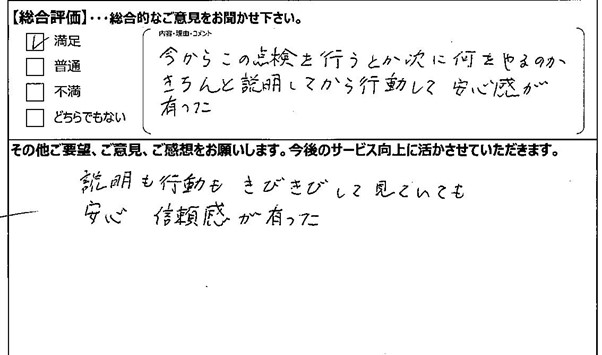 【総合評価】・・・総合的なご意見をお聞かせ下さい。
満足
普通
不満
どちらでもない
内容・理由・コメント
今からこの点検を行うとか次に何をやるのか
きちんと説明してから行動して 安心感が
有った
その他ご要望、ご意見、ご感想をお願いします。今後のサービス向上に活かさせていただきます。
説明も行動も きびきびして見ていても
安心 信頼感が有った